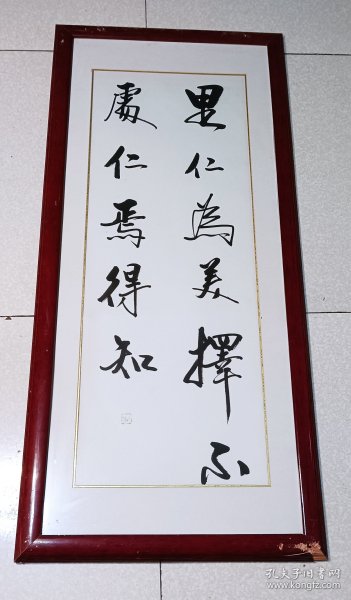 里仁為美擇不
處仁焉得知
孔夫子旧书网
www.kongfz.com